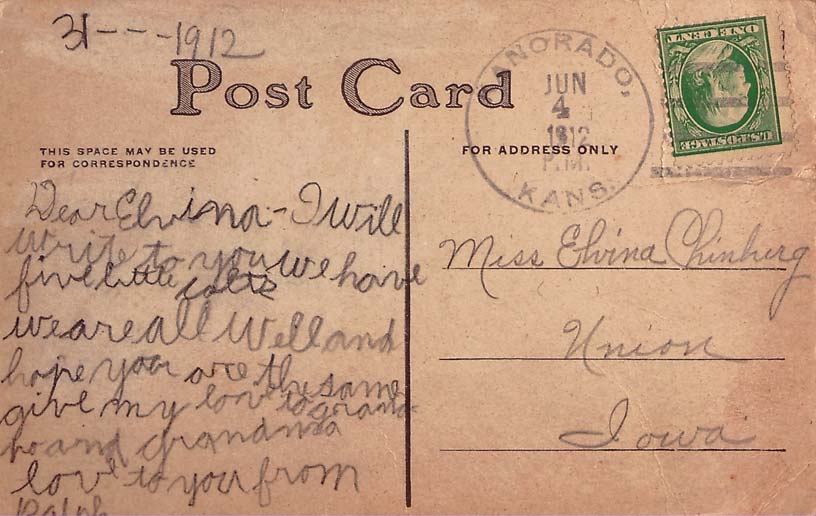 31---1912
Post Card
THIS SPACE MAY BE USED
FOR CORRESPONDENCE
Dear Elvina - I will
write to you we have
five little colts
we are all well and
hope you are the same
give my love to grand
pa and grandma
love to you from
Ralph
ANORADO,
JUN
4
1912
P.M.
KANS.
ONE CENT
U.S. POSTAGE
FOR ADDRESS ONLY
Miss Elvina Chinberg
Union
Iowa